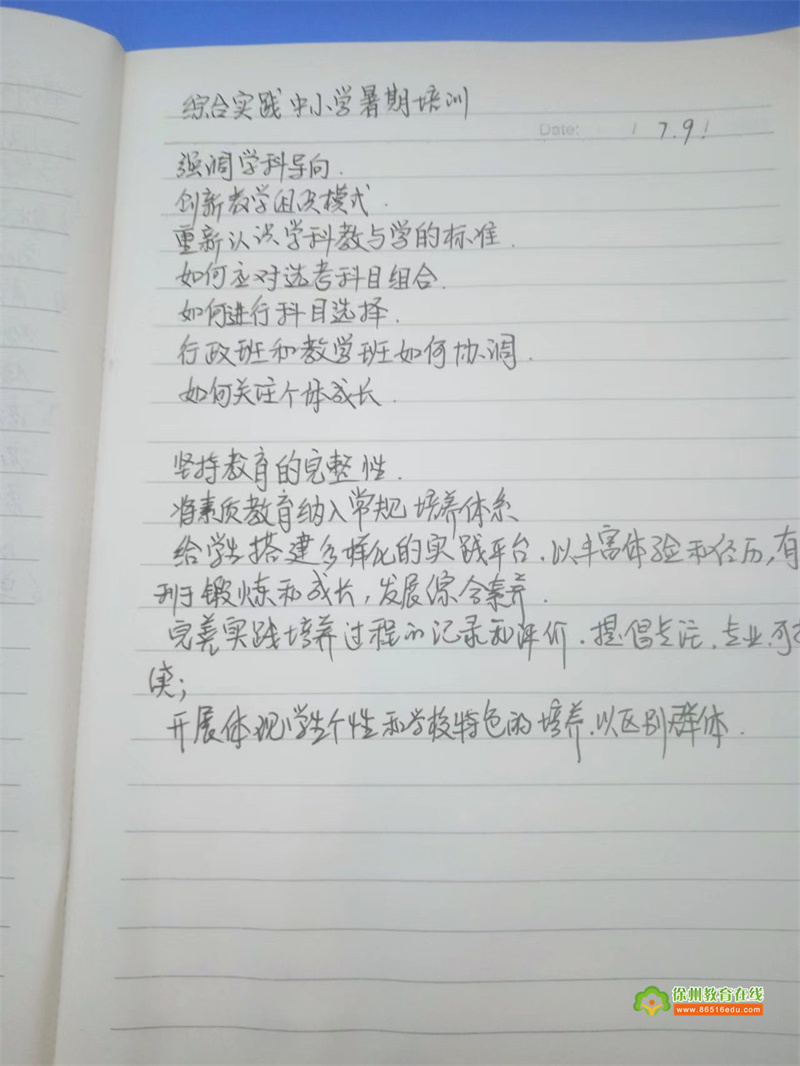 综合实践中小学暑期培训
Date: / 7.9 /
强调学科导向.
创新教学组织模式.
重新认识学科教与学的标准.
如何应对选考科目组合.
如何进行科目选择.
行政班和教学班如何协调.
如何关注个体成长.
坚持教育的完整性.
将素质教育纳入常规培养体系
给学生搭建多样化的实践平台.以丰富体验和经历,有
利于锻炼和成长,发展综合素养.
完善实践培养过程的记录和评价.提倡专注.专业.可
续;
开展体现学生个性和学校特色的培养.以区别群体.
徐州教育在线
www.86516edu.com